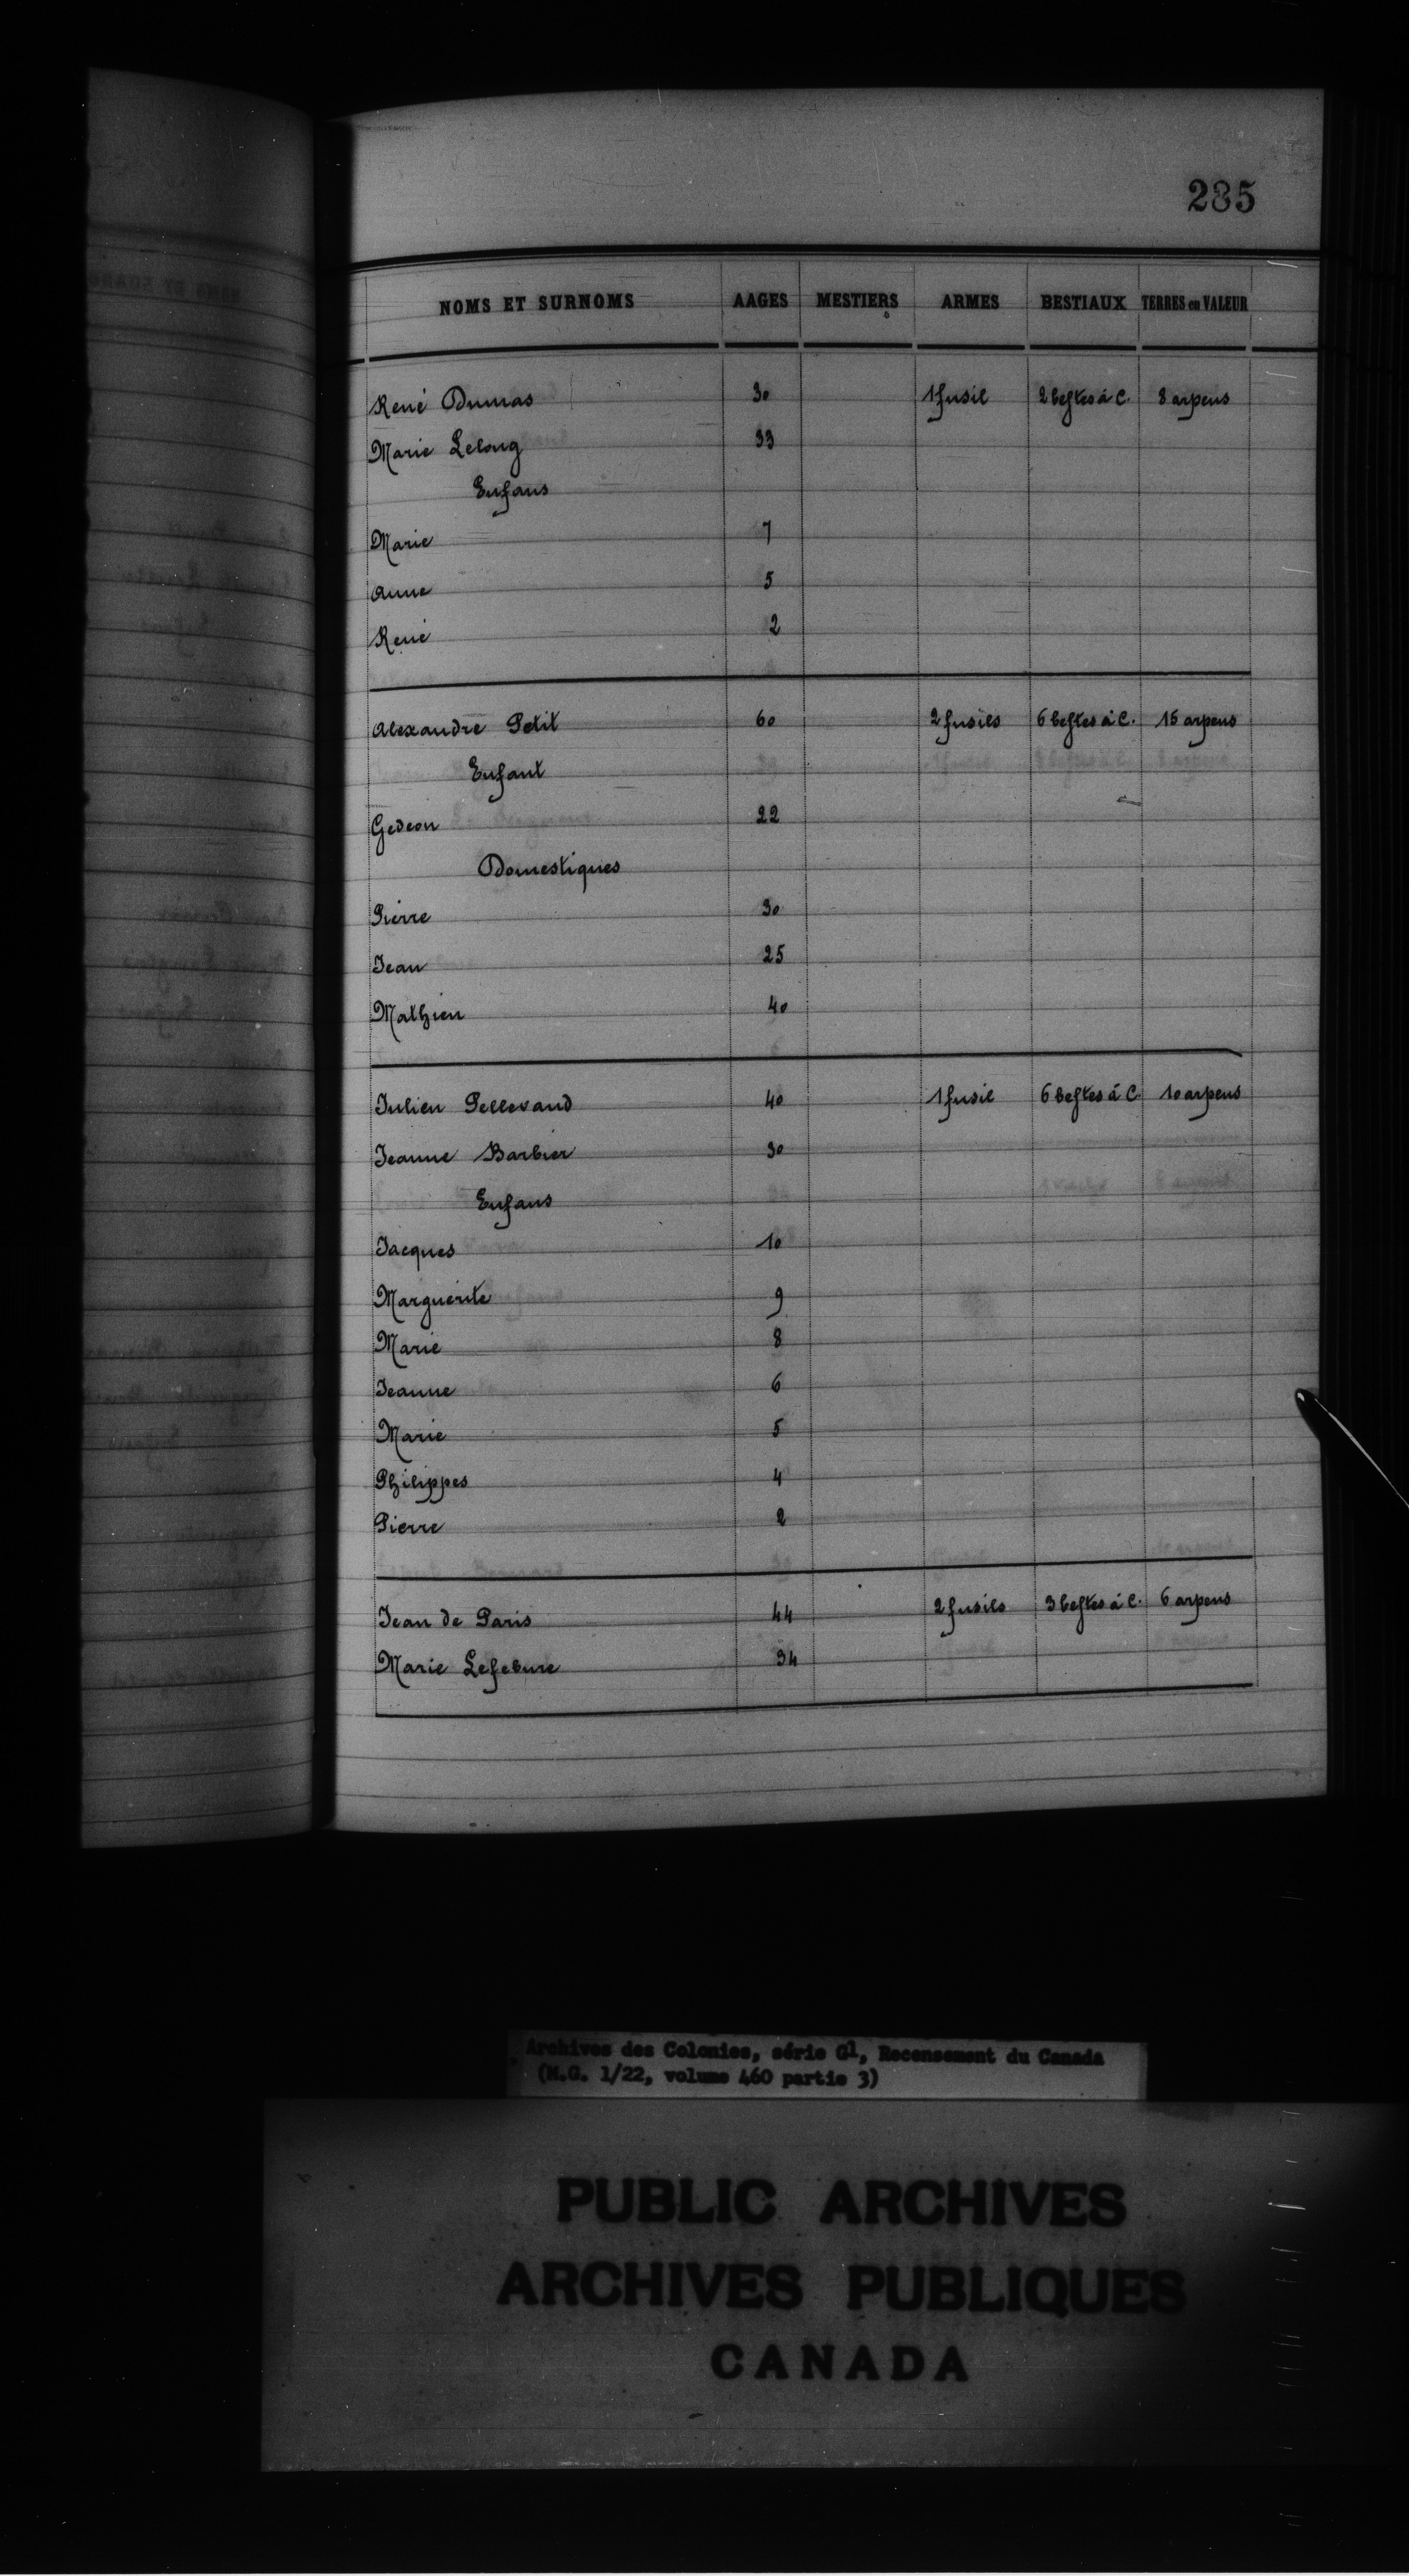 235
NOMS ET SURNOMS AAGES MESTIERS ARMES BESTIAUX TERRES en VALEUR
René Dumas 30 1 fusil 2 bestes à C. 8 arpens
Marie Lelong 33
Enfans
Marie 7
Anne 5
René 2
Alexandre Petit 60 2 fusils 6 bestes à C. 15 arpens
Enfant
Gedeon 22
Domestiques
Pierre 30
Jean 25
Mathieu 40
Julien Pellevand 40 1 fusil 6 bestes à C. 10 arpens
Jeanne Barbier 30
Enfans
Jacques 10
Marguerite 9
Marie 8
Jeanne 6
Marie 5
Philippes 4
Pierre 2
Jean de Paris 44 2 fusils 3 bestes à C. 6 arpens
Marie Lefebure 34
Archives des Colonies, série G1, Recensement du Canada
(M.G. 1/22, volume 460 partie 3)
PUBLIC ARCHIVES
ARCHIVES PUBLIQUES
CANADA